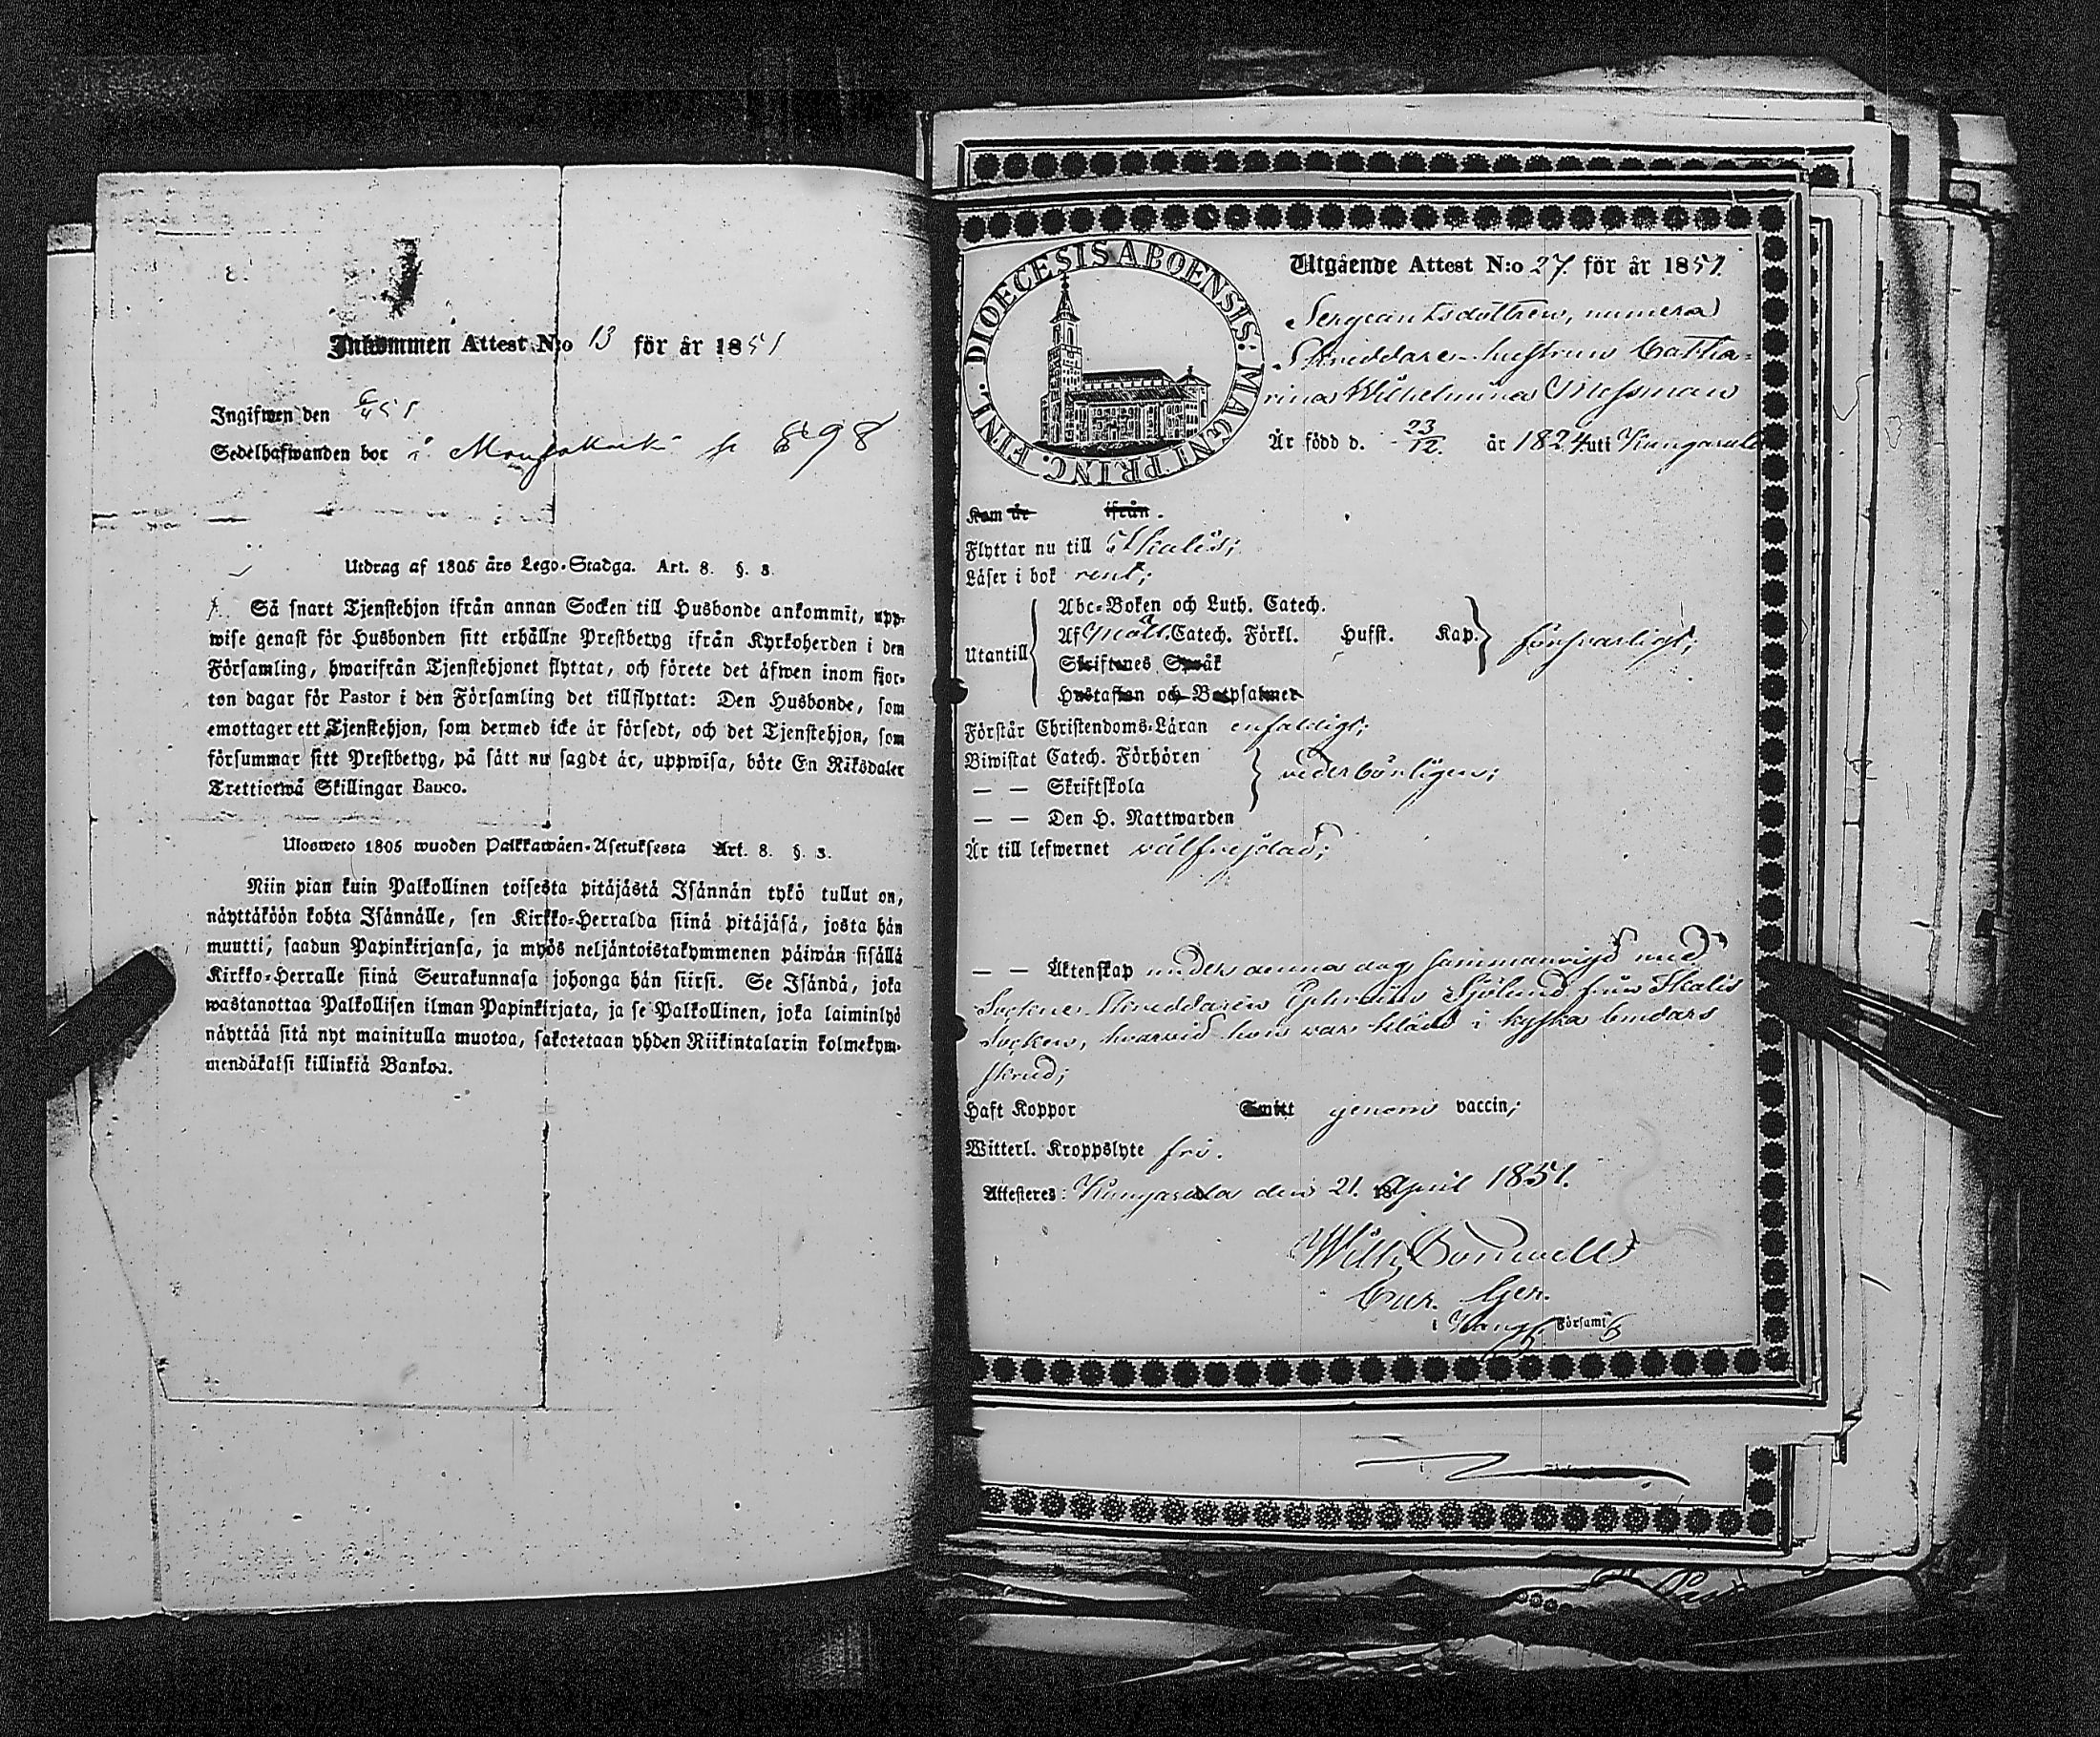 Inkommen Attest N:o 13 för år 1851
Ingifwen den 6/4 51
Sedelhafwanden bor i
Utdrag af 1805 års Lego-Stadga. Art. 8. §. 3.
Så snart Tjenstehjon ifrån annan Socken till Husbonde ankommit, upp-
wise genast för Husbonden sitt erhållne Prestbetyg ifrån Kyrkoherden i den
Församling, hwarifrån Tjenstehjonet flyttat, och förete det äfwen inom fjor-
ton dagar för Pastor i den Församling det tillflyttat: Den Husbonde, som
emottager ett Tjenstehjon, som dermed icke är försedt, och det Tjenstehjon, som
försummar sitt Prestbetyg, på sätt nu sagdt är, uppwisa, böte En Riksdaler
Trettiotwå Skillingar Banco.
Ulosweto 1805 wuoden Palkkawäen-Asetuksesta Art. 8. §. 3.
Niin pian kuin Palkollinen toisesta pitäjästä Isännän tykö tullut on,
näyttäköön kohta Isännälle, sen Kirkko-Herralda siinä pitäjäsä, josta hän
muutti, saadun Papinkirjansa, ja myös neljäntoistakymmenen päiwän sisällä
Kirkko-Herralle siinä Seurakunnasa johonga hän siirsi. Se Isändä, joka
wastanottaa Palkollisen ilman Papinkirjata, ja se Palkollinen, joka laiminlyö
näyttää sitä nyt mainitulla muotoa, sakotetaan yhden Riikintalarin kolmekym-
mendäkaksi killinkiä Bankoa.
DIOECESIS ABOENSIS: MAGNI PRINC. FINL.
Utgående Attest N:o 27. för år 1851
Sergeantsdottren, numera
Skräddare-hustrun Catha-
rina Wilhelmina Messman
Är född d. 23/12. år 1824 uti Kungarula
Kom år ifrån.
Flyttar nu till Skalis;
Läser i bok rent;
Utantill
Abc-Boken och Luth. Catech.
Af Möll. Catech. Förkl. Husst. Kap.
försvarligt;
Skriftenes Språk
Hustaflan och Botpsalmer
Förstår Christendoms-Läran enfaldigt;
Biwistat Catech. Förhören
— — Skriftskola
vederbörligen;
— — Den H. Nattwarden
Är till lefwernet välfrejdad;
— — Äktenskap under denna dag sammanvigd med
Sockne-Skräddaren Ephraim Sjölund från Skalis
Socken, hvarvid hon var klädd i kyska brudars
skrud;
Haft Koppor Smitt genom vaccin;
Witterl. Kroppslyte fri.
Attesteres: Kungarula den 21. April 1851.
Cur. Ger.
i Kung. Församl